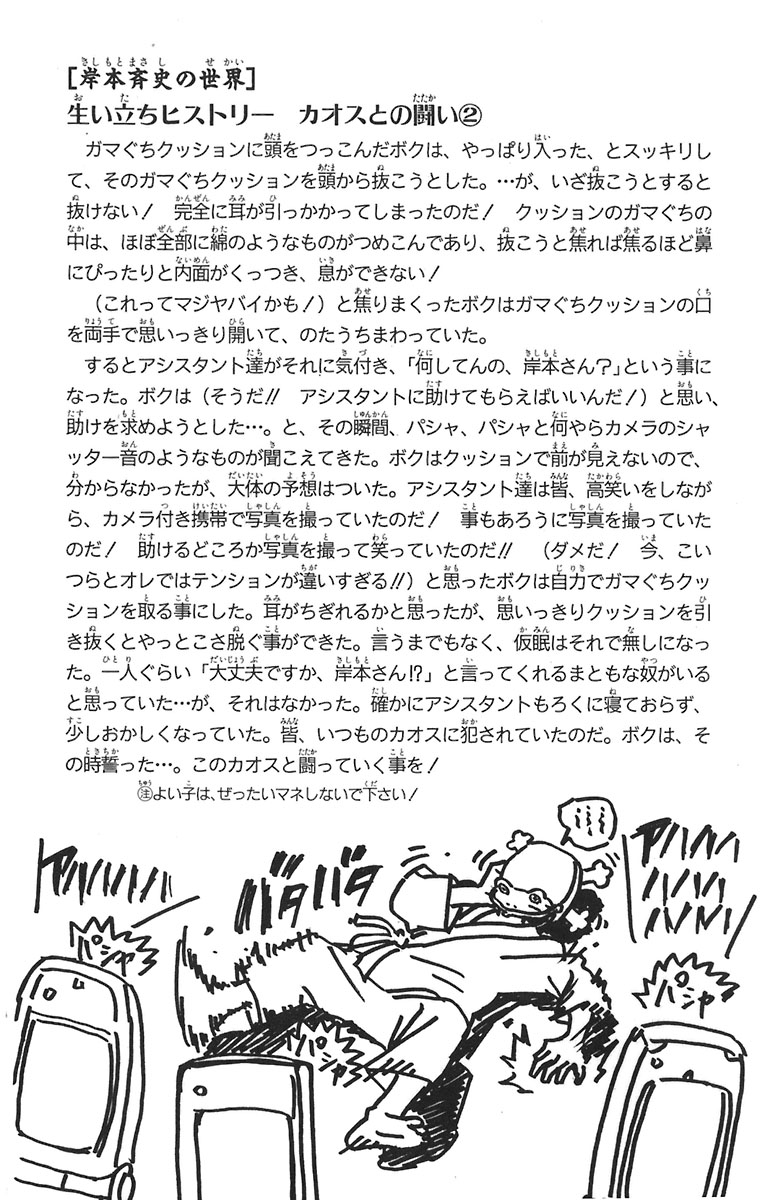 [岸本斉史の世界]
生い立ちヒストリー　カオスとの闘い②
　ガマぐちクッションに頭をつっこんだボクは、やっぱり入った、とスッキリし
て、そのガマぐちクッションを頭から抜こうとした。…が、いざ抜こうとすると
抜けない！　完全に耳が引っかかってしまったのだ！　クッションのガマぐちの
中は、ほぼ全部に綿のようなものがつめこんであり、抜こうと焦れば焦るほど鼻
にぴったりと内面がくっつき、息ができない！
　（これってマジヤバイかも！）と焦りまくったボクはガマぐちクッションの口
を両手で思いっきり開いて、のたうちまわっていた。
　するとアシスタント達がそれに気付き、「何してんの、岸本さん？」という事に
なった。ボクは（そうだ!!　アシスタントに助けてもらえばいいんだ！）と思い、
助けを求めようとした…。と、その瞬間、パシャ、パシャと何やらカメラのシャ
ッター音のようなものが聞こえてきた。ボクはクッションで前が見えないので、
分からなかったが、大体の予想はついた。アシスタント達は皆、高笑いをしなが
ら、カメラ付き携帯で写真を撮っていたのだ！　事もあろうに写真を撮っていた
のだ！　助けるどころか写真を撮って笑っていたのだ!!　（ダメだ！　今、こい
つらとオレではテンションが違いすぎる!!）と思ったボクは自力でガマぐちクッ
ションを取る事にした。耳がちぎれるかと思ったが、思いっきりクッションを引
き抜くとやっとこさ脱ぐ事ができた。言うまでもなく、仮眠はそれで無しになっ
た。一人ぐらい「大丈夫ですか、岸本さん!?」と言ってくれるまともな奴がいる
と思っていた…が、それはなかった。確かにアシスタントもろくに寝ておらず、
少しおかしくなっていた。皆、いつものカオスに犯されていたのだ。ボクは、そ
の時誓った…。このカオスと闘っていく事を！
㊟よい子は、ぜったいマネしないで下さい！
アハハハハハ
バタバタ
アハハハ
ハハハ
ハハハハ
パシャ
パシャ
パシャ